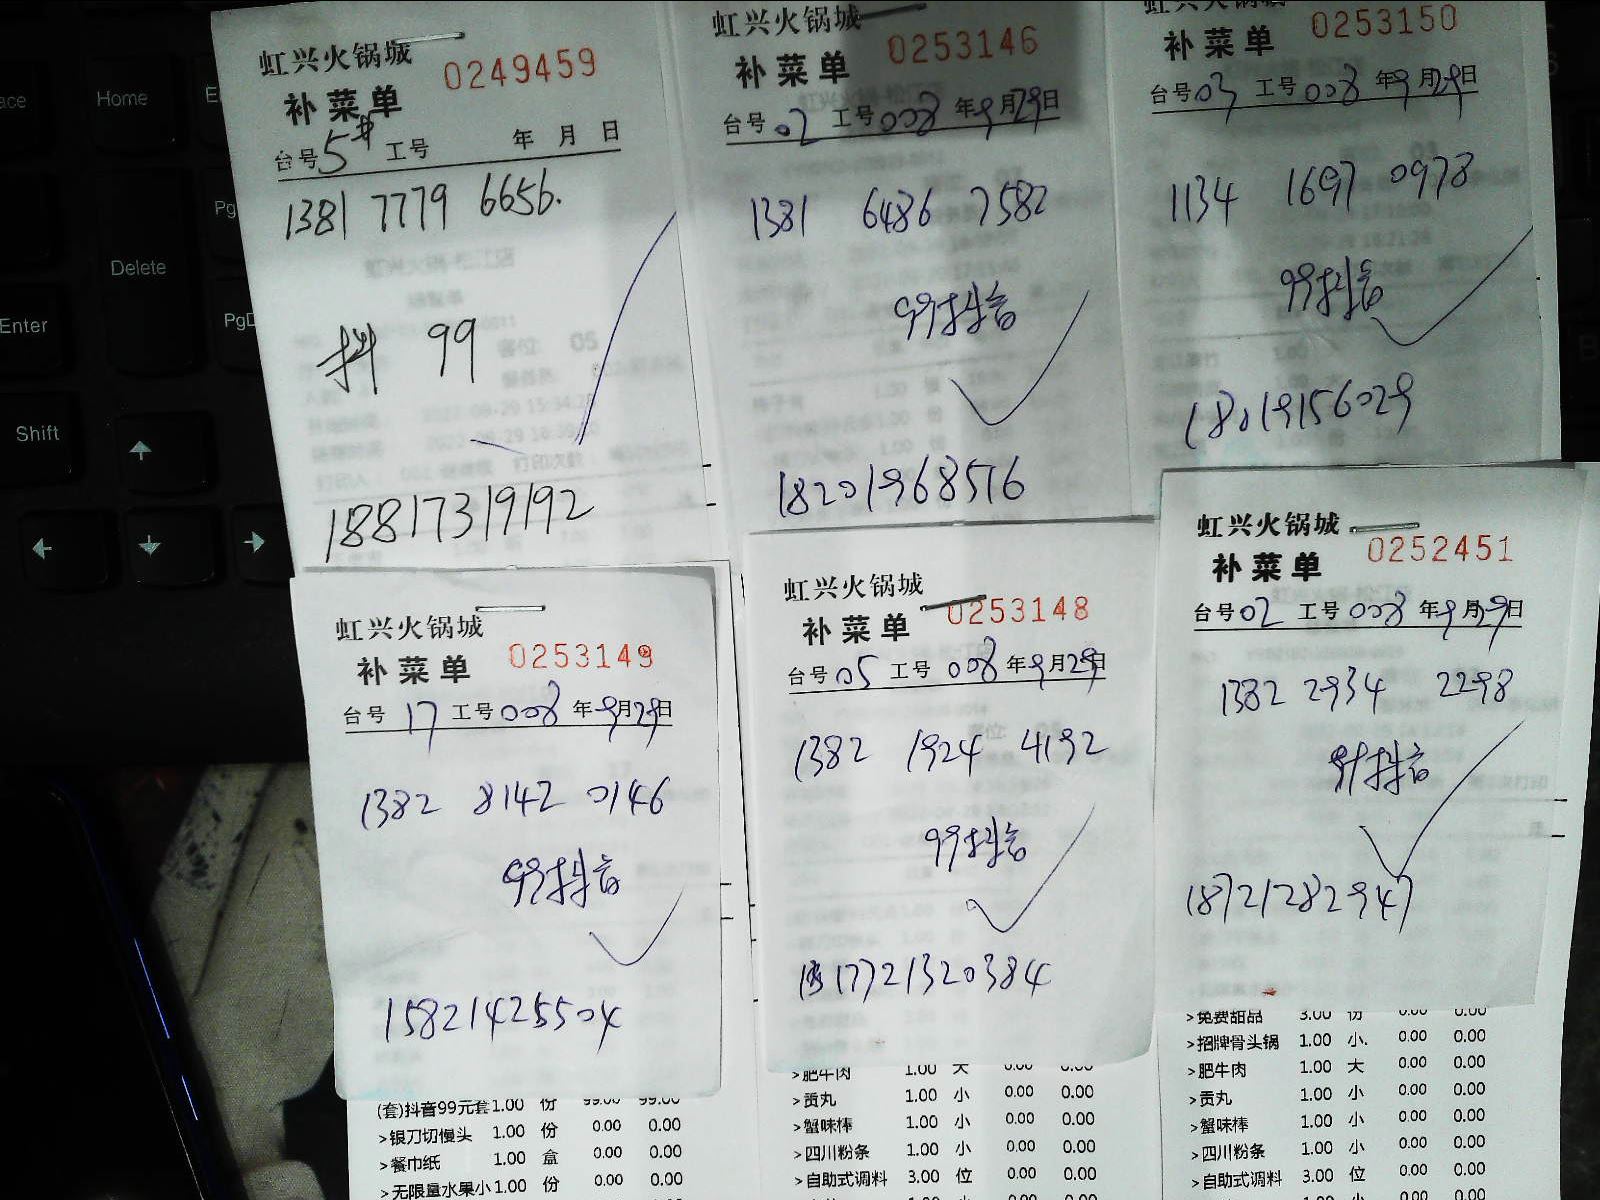 虹兴火锅城
补菜单 0249459
台号 5# 工号 年 月 日
1381 7779 6656.
抖 99
18817319192
虹兴火锅城
补菜单 0253146
台号 02 工号 008 年 9月29日
1381 6486 7582
99抖音
18201968516
虹兴火锅城
补菜单 0253150
台号 03 工号 008 年 9月29日
1134 1697 0978
99抖音
18019156029
虹兴火锅城
补菜单 0253149
台号 17 工号 008 年 9月29日
1382 8142 0146
99抖音
15821425504
(套)抖音99元套 1.00 份 99.00 99.00
>银刀切馒头 1.00 份 0.00 0.00
>餐巾纸 1.00 盒 0.00 0.00
>无限量水果小 1.00 份 0.00 0.00
虹兴火锅城
补菜单 0253148
台号 05 工号 008 年 9月29日
1382 1924 4192
99抖音
17721320384
>肥牛肉 1.00 大 0.00 0.00
>贡丸 1.00 小 0.00 0.00
>蟹味棒 1.00 小 0.00 0.00
>四川粉条 1.00 小 0.00 0.00
>自助式调料 3.00 位 0.00 0.00
虹兴火锅城
补菜单 0252451
台号 02 工号 008 年 9月29日
1382 2934 2298
99抖音
18721282947
>免费甜品 3.00 份 0.00 0.00
>招牌骨头锅 1.00 小. 0.00 0.00
>肥牛肉 1.00 大 0.00 0.00
>贡丸 1.00 小 0.00 0.00
>蟹味棒 1.00 小 0.00 0.00
>四川粉条 1.00 小 0.00 0.00
>自助式调料 3.00 位 0.00 0.00
Home
Delete
Enter
Shift